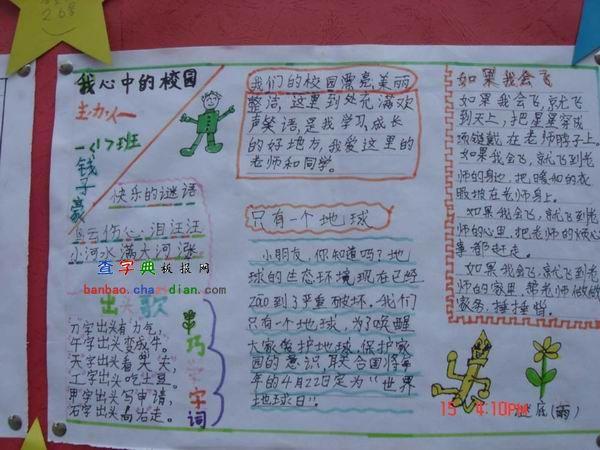 我心中的校园
主办人
一（1）班
钱子豪
我们的校园漂亮、美丽
整洁，这里到处充满欢
声笑语，是我学习、成长
的好地方，我爱这里的
老师和同学。
如果我会飞
如果我会飞，就飞
到天上，把星星穿成
项链戴在老师脖子上。
如果我会飞，就飞到老
师的身边，把暖和的衣
服披在老师身上。
如果我会飞，就飞到老
师的心里，把老师的烦心
事都赶走。
如果我会飞，就飞到老
师的家里，帮老师做做
家务，捶捶背。
快乐的谜语
云伤心，泪汪汪
小河水满大河涨
查字典板报网
banbao.chazidian.com
出头歌
力字出头有力气，
午字出头变成牛。
天字出头看丈夫，
工字出头吃土豆。
甲字出头写申请，
石字出头岩走。
巧字词
只有一个地球
小朋友，你知道吗？地
球的生态环境现在已经
到了严重破坏。我们
只有一个地球，为了唤醒
大家爱护地球、保护家
园的意识，联合国将每
年的4月22日定为“世界
地球日”。
谜底（雨）
15 4:10PM